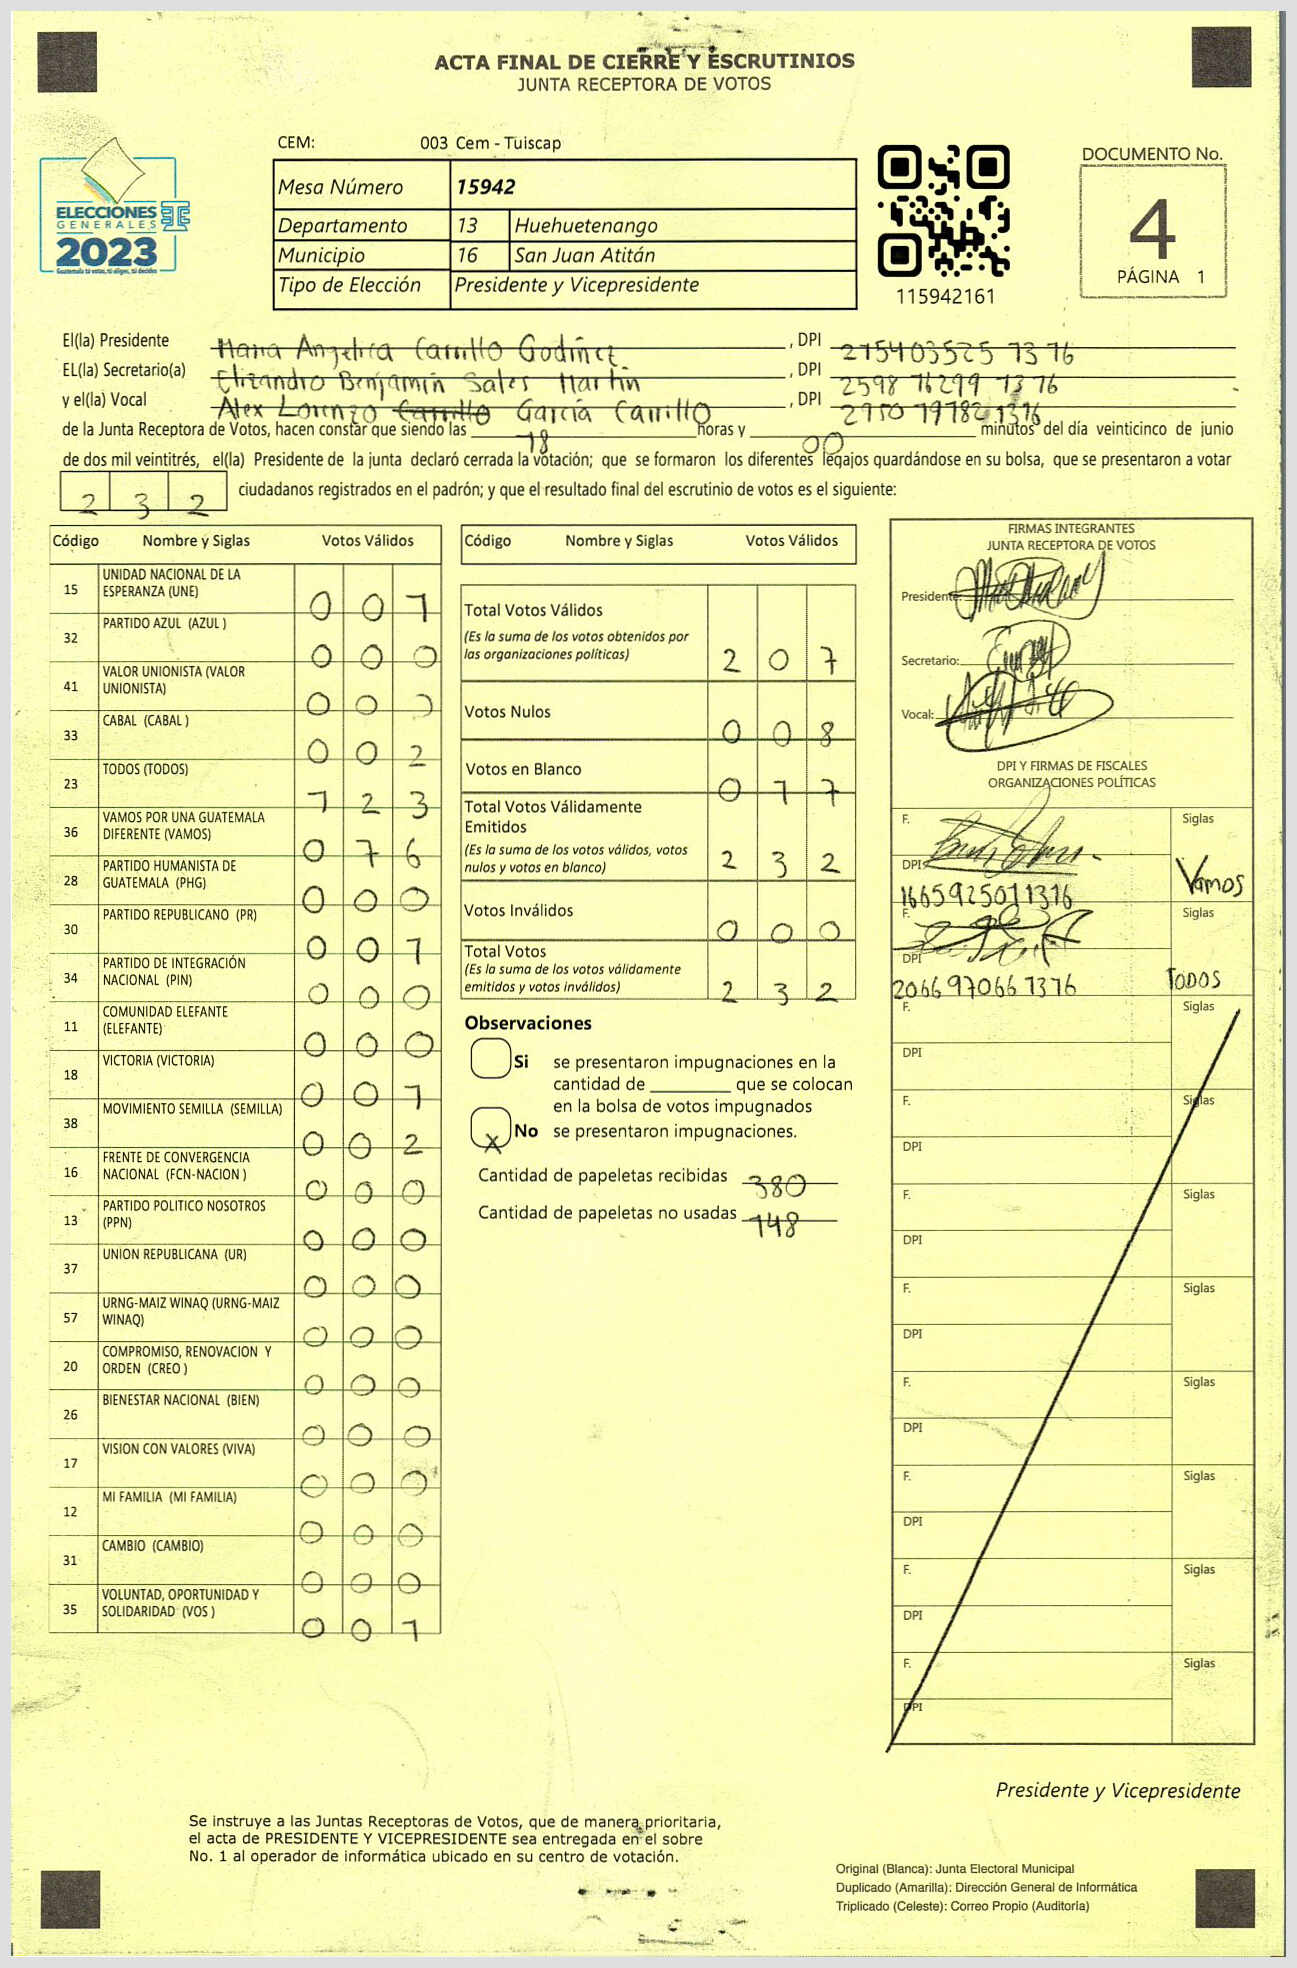 ACTA FINAL DE CIERRE Y ESCRUTINIOS
JUNTA RECEPTORA DE VOTOS
CEM: 003 Cem - Tuiscap
ELECCIONES
GENERALES
2023
Guatemala tú votas, tú eliges, tú decides
Mesa Número 15942
Departamento 13 Huehuetenango
Municipio 16 San Juan Atitán
Tipo de Elección Presidente y Vicepresidente
115942161
DOCUMENTO No.
4
PÁGINA 1
El(la) Presidente Maria Angelica Carrillo Godinez, DPI
EL(la) Secretario(a) Elizandro Benjamin Sales Martin, DPI 2598 76299 1376
y el(la) Vocal Alex Lorenzo García Carrillo, DPI 2950 79782 1316
de la Junta Receptora de Votos, hacen constar que siendo las 18 horas y 00 minutos del día veinticinco de junio
de dos mil veintitrés, el(la) Presidente de la junta declaró cerrada la votación; que se formaron los diferentes legajos quardándose en su bolsa, que se presentaron a votar
232 ciudadanos registrados en el padrón; y que el resultado final del escrutinio de votos es el siguiente:
Código Nombre y Siglas Votos Válidos
15 UNIDAD NACIONAL DE LA ESPERANZA (UNE) 0 0 1
32 PARTIDO AZUL (AZUL ) 0 0 0
41 VALOR UNIONISTA (VALOR UNIONISTA) 0 0 0
33 CABAL (CABAL ) 0 0 2
23 TODOS (TODOS) 1 2 3
36 VAMOS POR UNA GUATEMALA DIFERENTE (VAMOS) 0 7 6
28 PARTIDO HUMANISTA DE GUATEMALA (PHG) 0 0 0
30 PARTIDO REPUBLICANO (PR) 0 0 1
34 PARTIDO DE INTEGRACIÓN NACIONAL (PIN) 0 0 0
11 COMUNIDAD ELEFANTE (ELEFANTE) 0 0 0
18 VICTORIA (VICTORIA) 0 0 1
38 MOVIMIENTO SEMILLA (SEMILLA) 0 0 2
16 FRENTE DE CONVERGENCIA NACIONAL (FCN-NACION ) 0 0 0
13 PARTIDO POLITICO NOSOTROS (PPN) 0 0 0
37 UNION REPUBLICANA (UR) 0 0 0
57 URNG-MAIZ WINAQ (URNG-MAIZ WINAQ) 0 0 0
20 COMPROMISO, RENOVACION Y ORDEN (CREO ) 0 0 0
26 BIENESTAR NACIONAL (BIEN) 0 0 0
17 VISION CON VALORES (VIVA) 0 0 0
12 MI FAMILIA (MI FAMILIA) 0 0 0
31 CAMBIO (CAMBIO) 0 0 0
35 VOLUNTAD, OPORTUNIDAD Y SOLIDARIDAD (VOS ) 0 0 1
Código Nombre y Siglas Votos Válidos
Total Votos Válidos
(Es la suma de los votos obtenidos por
las organizaciones políticas) 2 0 7
Votos Nulos 0 0 8
Votos en Blanco 0 1 7
Total Votos Válidamente
Emitidos
(Es la suma de los votos válidos, votos
nulos y votos en blanco) 2 3 2
Votos Inválidos 0 0 0
Total Votos
(Es la suma de los votos válidamente
emitidos y votos inválidos) 2 3 2
Observaciones
Si se presentaron impugnaciones en la
cantidad de ________ que se colocan
en la bolsa de votos impugnados
X No se presentaron impugnaciones.
Cantidad de papeletas recibidas 380
Cantidad de papeletas no usadas 148
FIRMAS INTEGRANTES
JUNTA RECEPTORA DE VOTOS
Presidente:
Secretario:
Vocal:
DPI Y FIRMAS DE FISCALES
ORGANIZACIONES POLÍTICAS
F. Siglas
DPI Vamos
1665925011316
F. Siglas
DPI TODOS
2066 97066 1376
F. Siglas
DPI
F. Siglas
DPI
F. Siglas
DPI
F. Siglas
DPI
F. Siglas
DPI
F. Siglas
DPI
F. Siglas
DPI
F. Siglas
DPI
Presidente y Vicepresidente
Se instruye a las Juntas Receptoras de Votos, que de manera prioritaria,
el acta de PRESIDENTE Y VICEPRESIDENTE sea entregada en el sobre
No. 1 al operador de informática ubicado en su centro de votación.
Original (Blanca): Junta Electoral Municipal
Duplicado (Amarilla): Dirección General de Informática
Triplicado (Celeste): Correo Propio (Auditoría)